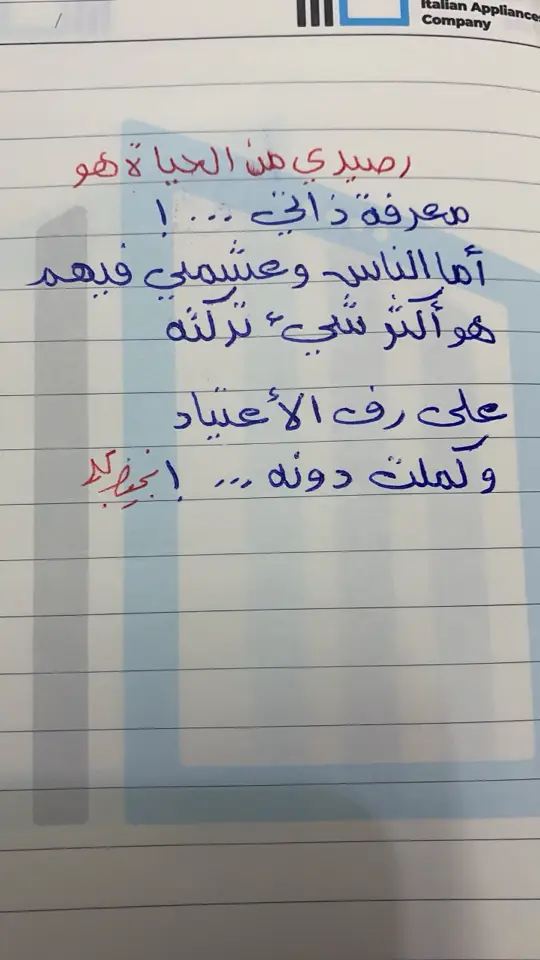 /
Italian Appliances
Company
رصيدي من الحياة هو
معرفة ذاتي ... !
أما الناس وعشمي فيهم
هو أكثر شيء تركته
على رف الأعتياد
وكملت دونه ... !